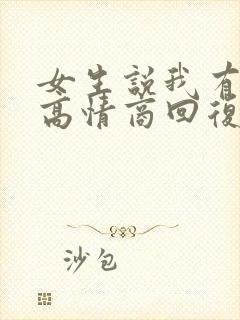 女生説我有
高情商回復
沙包